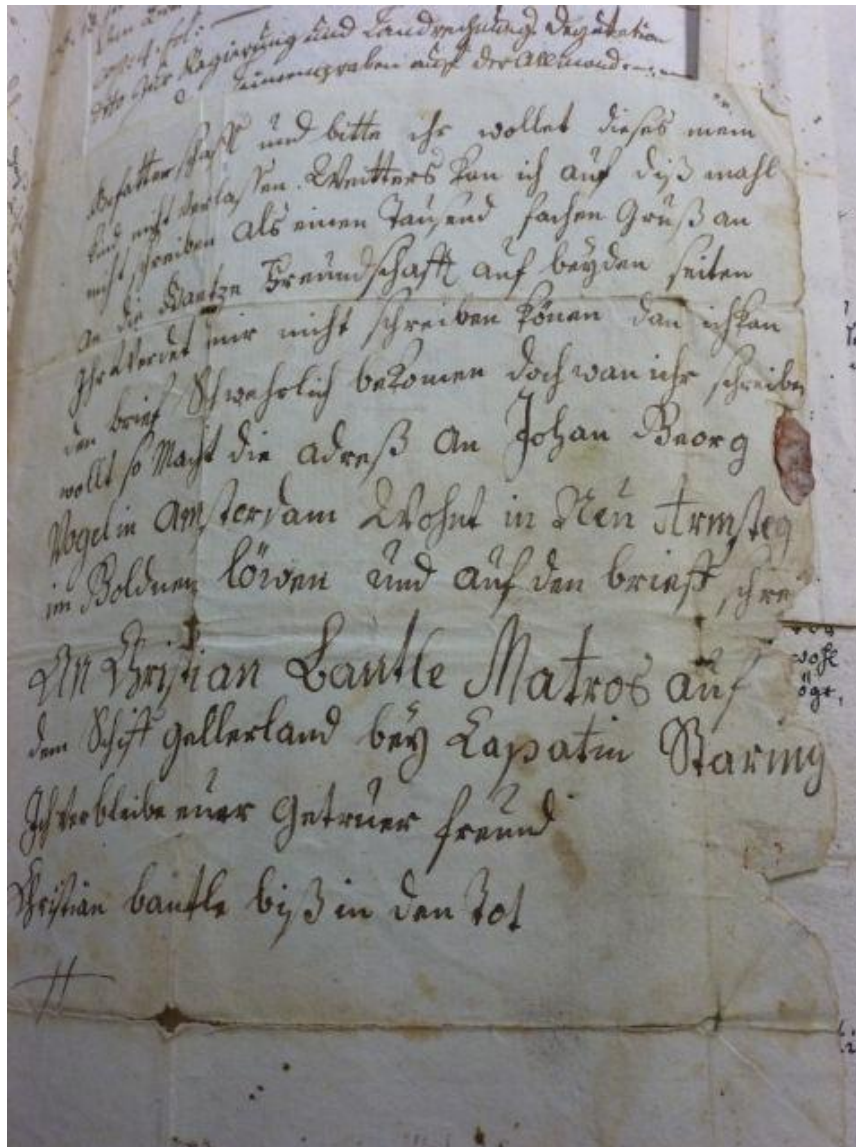 zur Regierung und Landrechnung Deputation
auf der Allmand
Gefatterschafft und bitte ihr wollet dieses mein
Kind nicht verlassen. Weitters kan ich auf diß mahl
nicht schreiben als einen Tausend fachen Gruß an
an die Gantze Freundschafft auf beyden seiten
Ihr werdet mir nicht schreiben könen dan ich kan
den brief Schwehrlich bekomen doch wan ihr schreiben
wollt so Macht die adreß An Johan Georg
Vogel in Amsterdam Wohnt in Neu Armsteg
im Goldnen löwen und auf den brieff schre
An Christian Bantle Matros auf
dem Schiff gellerland bey Capatin Staring
Ich verbleibe euer Getruer freund
Christian bantle biß in den Tot